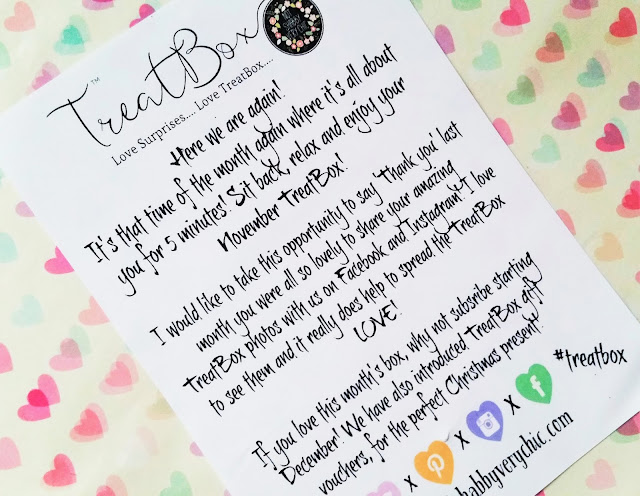 TreatBox™
Love Surprises.... Love TreatBox....
Here we are again!
It's that time of the month again where it's all about
you for 5 minutes! Sit back, relax and enjoy your
November TreatBox!
I would like to take this opportunity to say 'thank you' last
month you were all so lovely to share your amazing
TreatBox photos with us on Facebook and Instagram! I love
to see them and it really does help to spread the TreatBox
LOVE!
If you love this month's box, why not subsribe starting
December! We have also introduced TreatBox gift
vouchers, for the perfect Christmas present!
#treatbox
x x x
habbyverychic.com